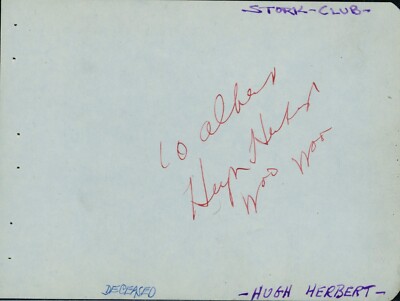 STORK-CLUB-
to Albert
Hugh Herbert
Woo Woo
DECEASED
-HUGH HERBERT-